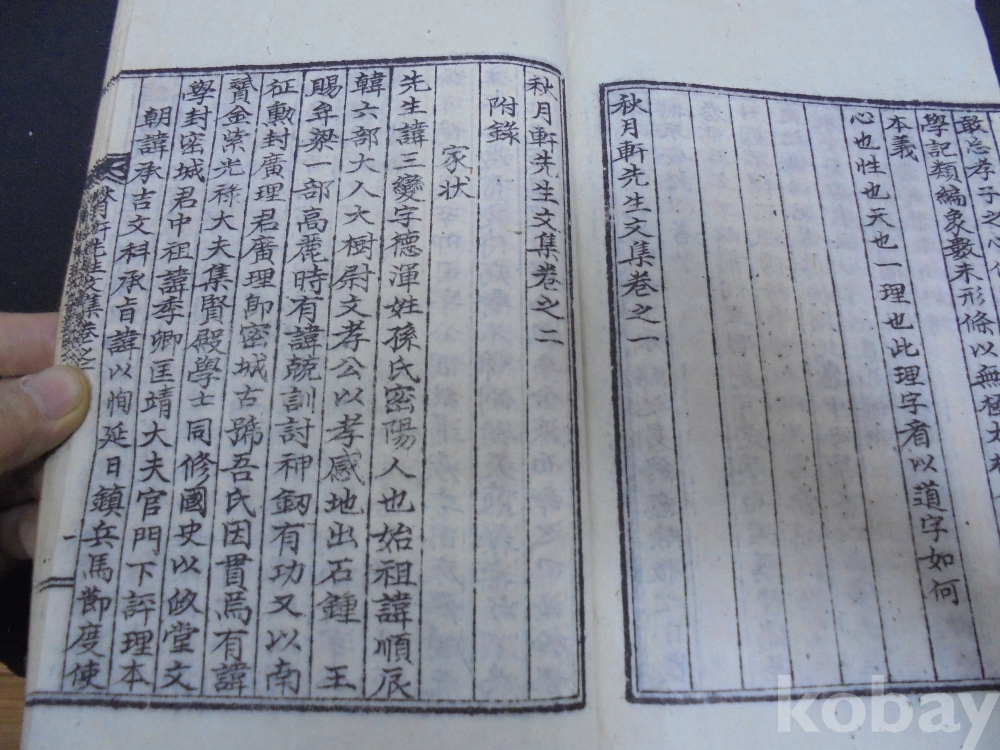 敢忘孝子之心
學記類編象數未形條以無極太極
本義
心也性也天也一理也此理字看以道字如何
秋月軒先生文集卷之一
秋月軒先生文集卷之二
附錄
家狀
先生諱三變字德渾姓孫氏密陽人也始祖諱順辰
韓六部大人大樹尉文孝公以孝感地出石鍾 王
賜牟梁一部高麗時有諱兢訓討神釰有功又以南
征勳封廣理君廣理卽密城古號吾氏因貫焉有諱
贇金紫光祿大夫集賢殿學士同修國史以 堂文
學封密城君中祖諱季卿匡靖大夫官門下評理本
朝諱承吉文科承旨諱以恂延日鎭兵馬節度使
一
kobay